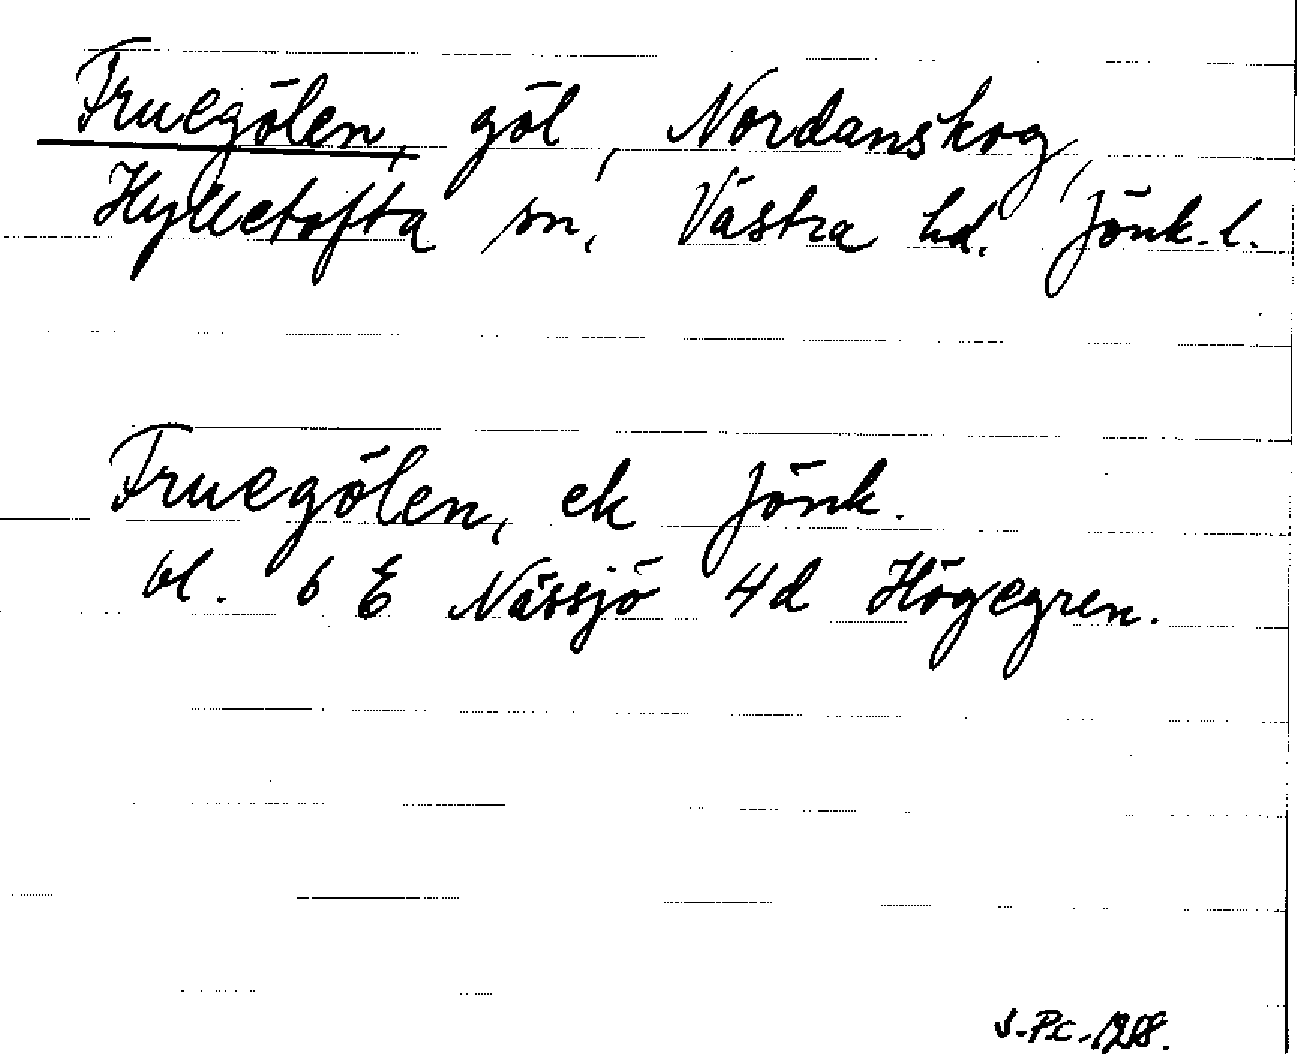 Fruegölen, göl, Nordanskog,
Hylletofta sn, Västra hd. Jönk. l.
Fruegölen, ek Jönk.
bl. 6 E Nässjö 4d Högegren.